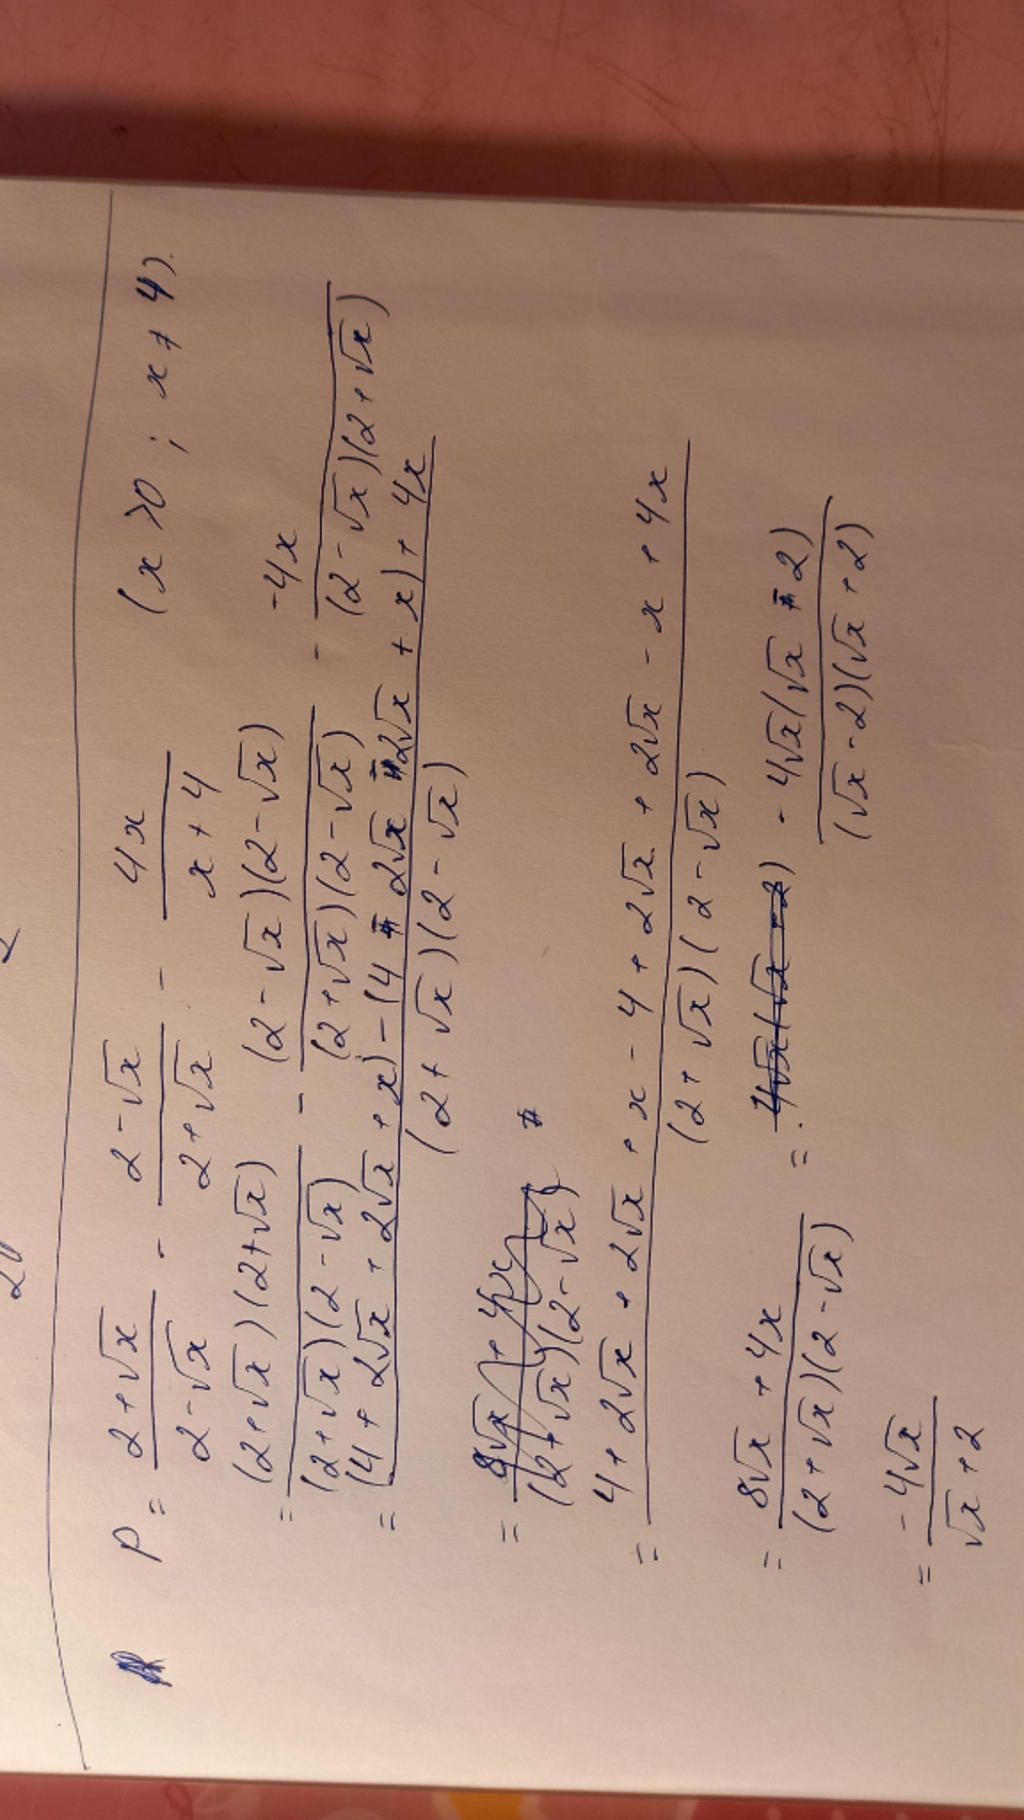 P = (2+√x)/(2-√x) - (2-√x)/(2+√x) - 4x/(x+4) (x>0 ; x≠4).
= (2+√x)(2+√x)/(2+√x)(2-√x) - (2-√x)(2-√x)/(2+√x)(2-√x) - -4x/(2-√x)(2+√x)
= (4+2√x+2√x+x)-(4-2√x-2√x+x)+4x/(2+√x)(2-√x)
= 8√x+4x/(2+√x)(2-√x)
= 4+2√x+2√x+x-4+2√x+2√x-x+4x/(2+√x)(2-√x)
= 8√x+4x/(2+√x)(2-√x) = -4√x(√x-2)/(√x-2)(√x+2)
= -4√x/√x+2